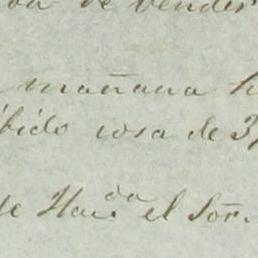 de vender
mañana
cosa de 3
de Hacda el Sor.